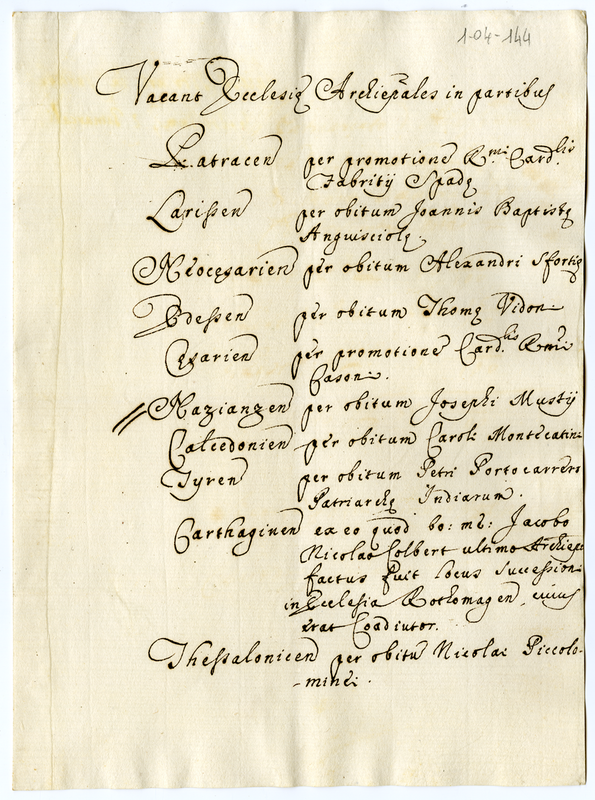 1-04-144
Vacant Ecclesię Archiep̃ales in partibus
Patracen per promotionē R.mi Card.lis
Fabritij Spadę
Larissen per obitum Joannis Baptistę
Anguisciolę.
Neocęsarien per obitum Alexandri Sfortię
Edessen per obitum Thomę Vidon:
Cęsarien per promotionē Card.lis R.mi
Cason:.
// Nazianzen per obitum Josephi Mustij
Calcedonien per obitum Caroli Montecatin:
Tyren per obitum Petri Portocarrero
Patriarchę Indiarum.
Carthaginen ex eo quod bo: me: Jacobo
Nicolao Colbert ultimo Archiep:
factus fuit locus succession:
in Ecclesia Rothomagen, cuius
erat Coadiutor.
Thessalonicen per obitū Nicolai Piccolo-
-minei.